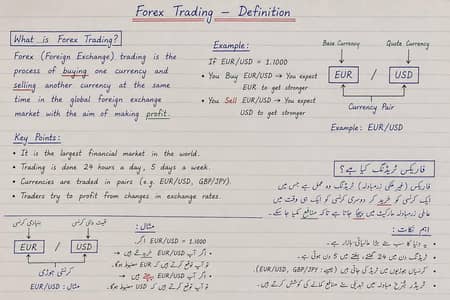 Forex Trading – Definition
What is Forex Trading?
Forex (Foreign Exchange) trading is the
process of buying one currency and
selling another currency at the same
time in the global foreign exchange
market with the aim of making profit.
Key Points:
• It is the largest financial market in the world.
• Trading is done 24 hours a day, 5 days a week.
• Currencies are traded in pairs (e.g. EUR/USD, GBP/JPY).
• Traders try to profit from changes in exchange rates.
Example:
If EUR/USD = 1.1000
• You Buy EUR/USD → You expect
EUR to get stronger
• You Sell EUR/USD → You expect
USD to get stronger
Base Currency
Quote Currency
EUR / USD
Currency Pair
Example: EUR/USD
فاریکس ٹریڈنگ کیا ہے؟
فاریکس (غیر ملکی زرمبادلہ) ٹریڈنگ وہ عمل ہے جس میں
ایک کرنسی کو خرید کر دوسری کرنسی کو ایک ہی وقت میں
عالمی زرمبادلہ مارکیٹ میں بیچا جاتا ہے تاکہ منافع کمایا جا سکے۔
اہم نکات:
• یہ دنیا کا سب سے بڑا مالیاتی بازار ہے۔
• ٹریڈنگ دن میں 24 گھنٹے، ہفتے میں 5 دن ہوتی ہے۔
• کرنسیاں جوڑیوں میں ٹریڈ کی جاتی ہیں (جیسے EUR/USD, GBP/JPY)۔
• ٹریڈر شرح مبادلہ میں تبدیلی سے منافع کمانے کی کوشش کرتے ہیں۔
مثال:
اگر EUR/USD = 1.1000
• اگر آپ EUR/USD خریدتے ہیں →
تو آپ توقع کرتے ہیں کہ EUR مضبوط ہوگا۔
• اگر آپ EUR/USD بیچتے ہیں →
تو آپ توقع کرتے ہیں کہ USD مضبوط ہوگا۔
بنیادی کرنسی
کرنسی
EUR / USD
کرنسی جوڑی
مثال: EUR/USD